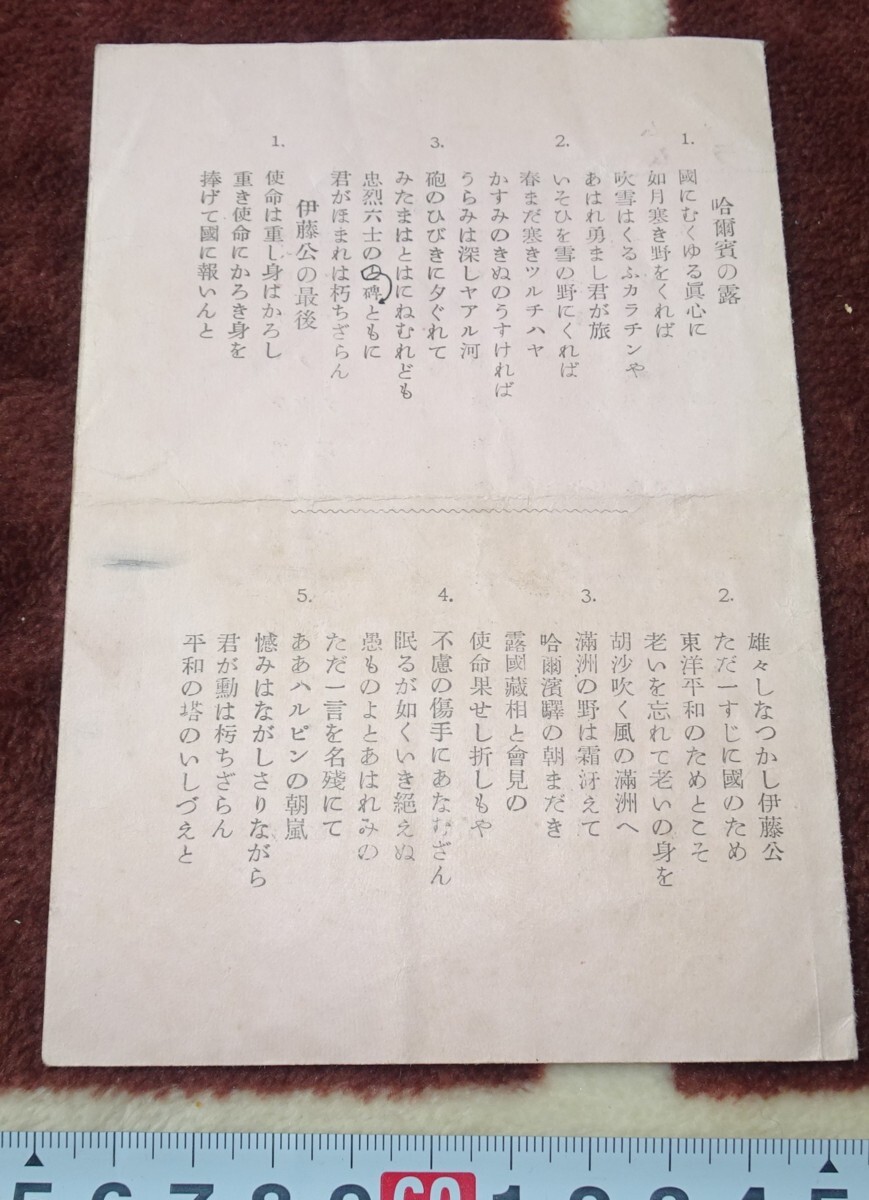 哈爾賓の露
1.
國にむくゆる眞心に
如月寒き野をくれば
吹雪はくるふカラチンや
あはれ勇まし君が旅
2.
いそひを雪の野にくれば
春まだ寒きツルチハヤ
かすみのきぬのうすければ
うらみは深しヤアル河
3.
砲のひびきに夕ぐれて
みたまはとはにねむれども
忠烈六士のの碑ともに
君がほまれは朽ちざらん
伊藤公の最後
1.
使命は重し身はかろし
重き使命にかろき身を
捧げて國に報いんと
雄々しなつかし伊藤公
2.
ただ一すじに國のため
東洋平和のためとこそ
老いを忘れて老いの身を
胡沙吹く風の滿洲へ
3.
滿洲の野は霜冴えて
哈爾濱驛の朝まだき
露國藏相と會見の
使命果せし折しもや
4.
不慮の傷手にあなむざん
眠るが如くいき絕えぬ
愚ものよとあはれみの
ただ一言を名殘にて
5.
ああハルピンの朝嵐
憾みはながしさりながら
君が勳は朽ちざらん
平和の塔のいしづえと
5 6 7 8 9 60 1 2 3 4 5